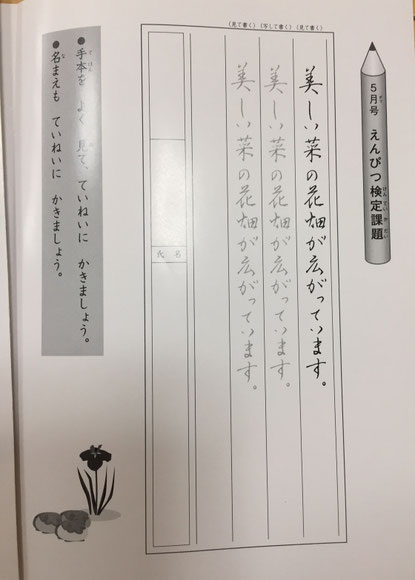 5月号 えんぴつ検定課題
（見て書く）（写して書く）（見て書く）
美しい菜の花畑が広がっています。
美しい菜の花畑が広がっています。
美しい菜の花畑が広がっています。
氏名
●手本を よく 見て、ていねいに かきましょう。
●名まえも ていねいに かきましょう。